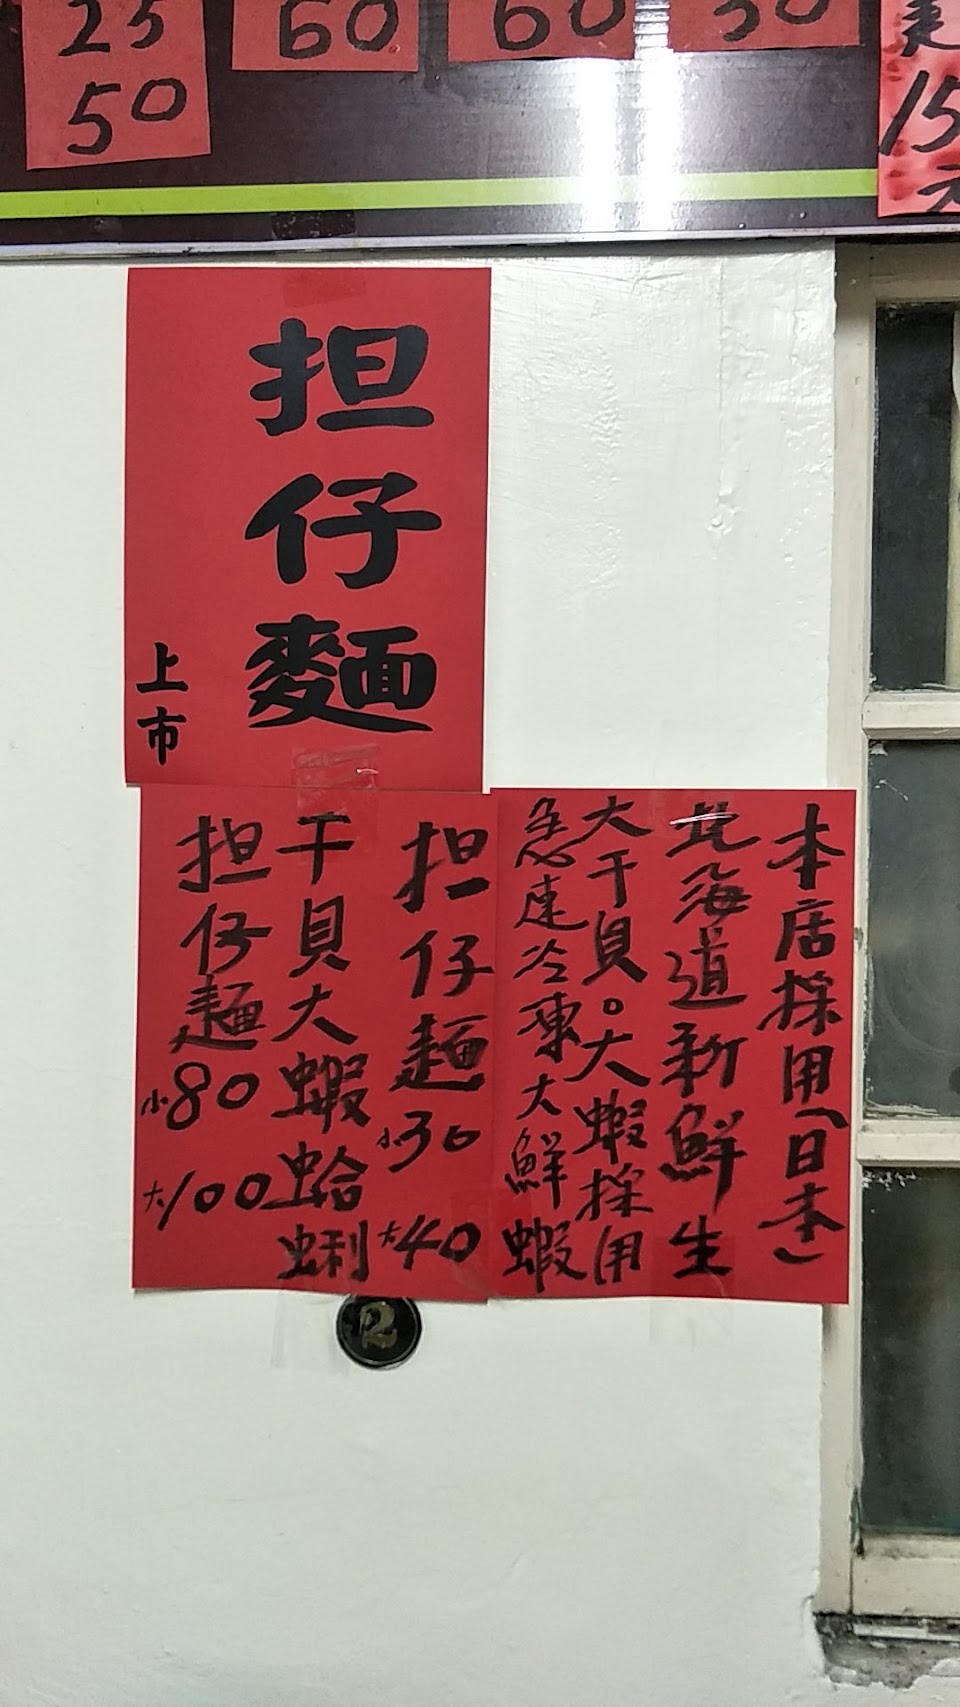 25
50
60
60
15
元
担仔麵
上市
本店採用(日本)
北海道新鮮生
大干貝。大蝦採用
急速冷凍大鮮蝦
担仔麵小30 大40
干貝大蝦蛤蜊
担仔麵小80 大100
2